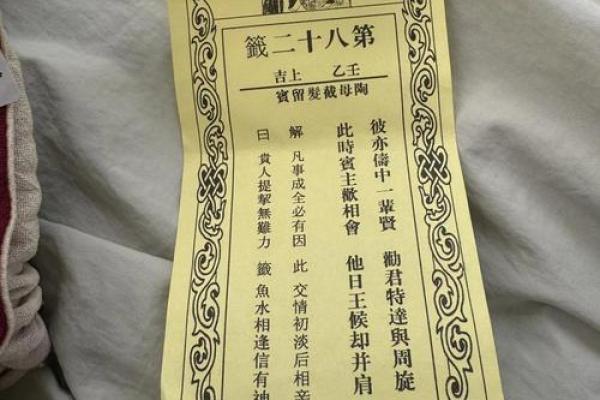 第八十二籤
壬乙 上吉
陶母截髮留賓
彼亦儔中一輩賢 勸君特達與周旋
此時賓主歡相會 他日王候却并肩
解 凡事成全必有因 此 交情初淡后相親
曰 貴人提挈無難力 籤 魚水相逢信有神